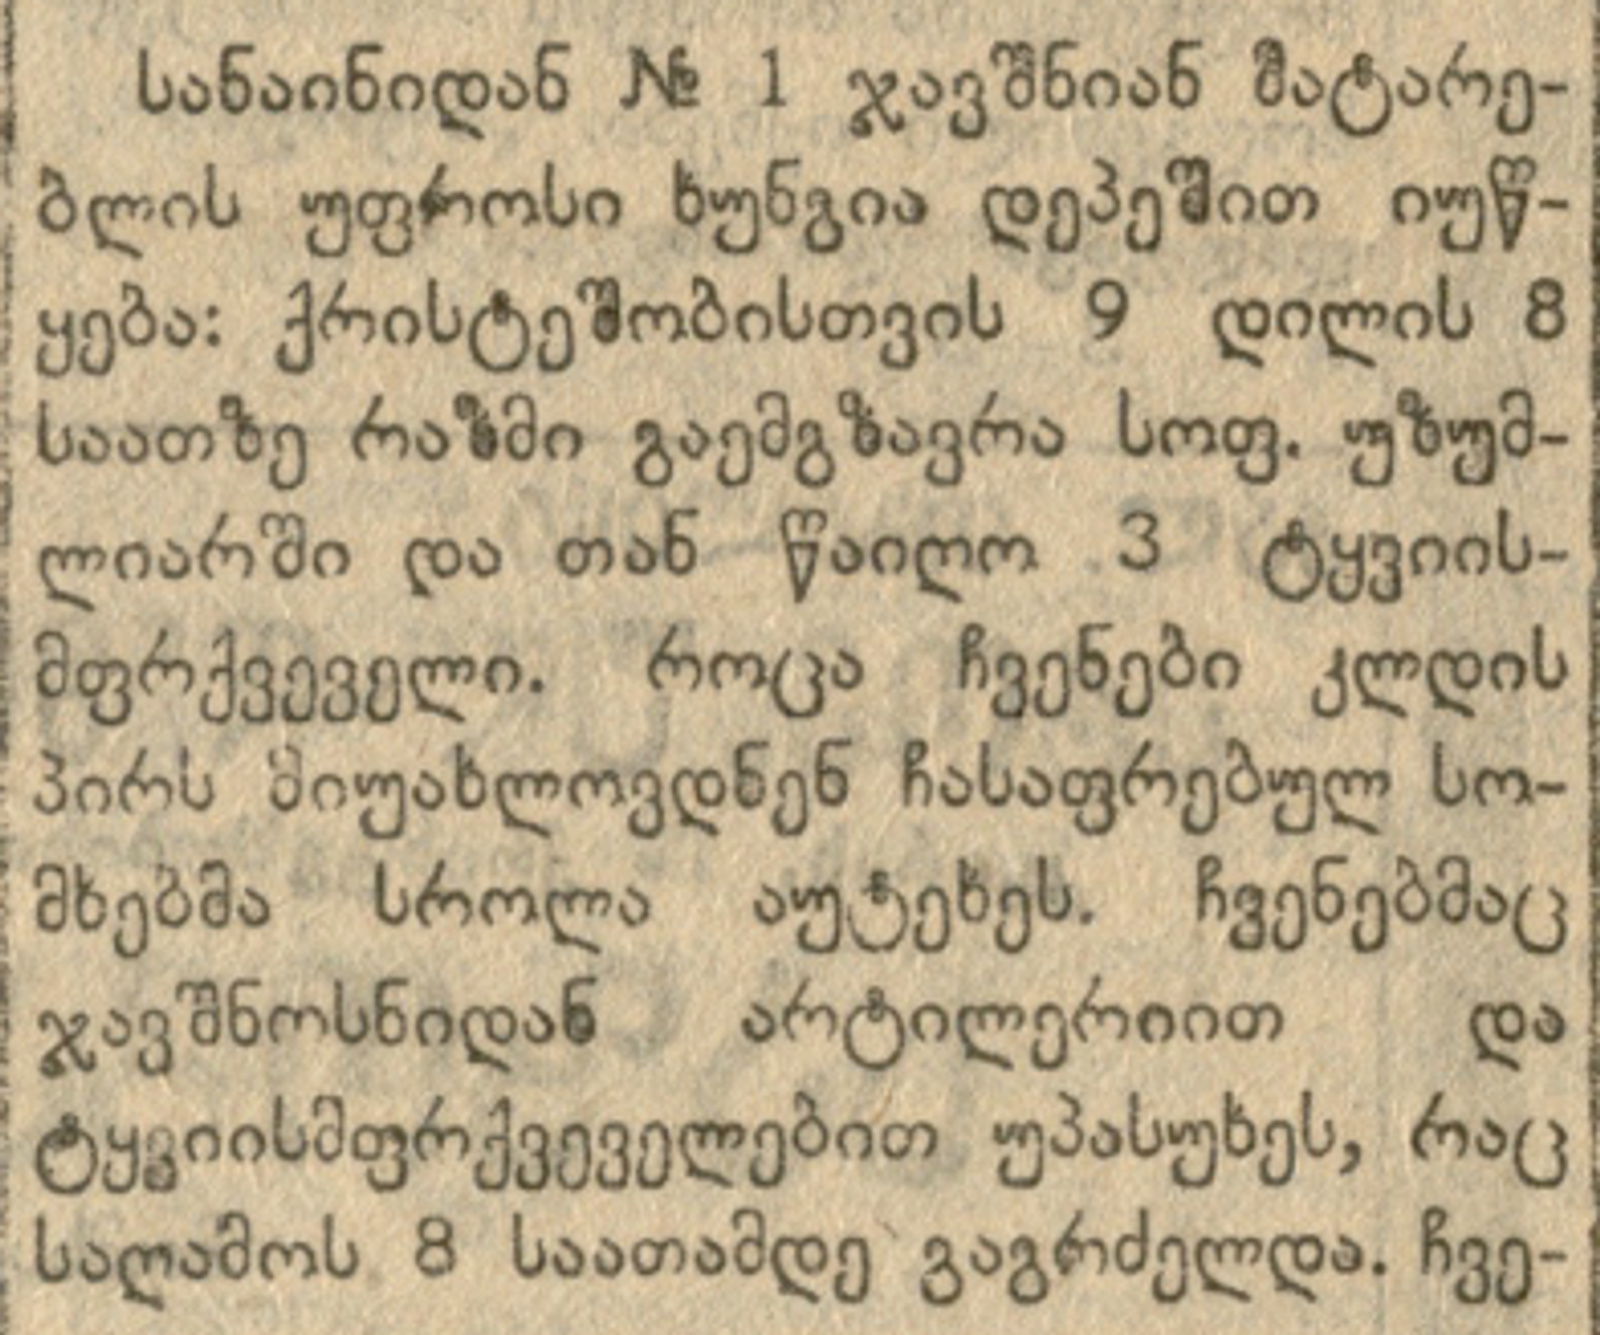 სანაინიდან № 1 ჯავშნიან მატარე-
ბლის უფროსი ხუნგია დეპეშით იუწ-
ყება: ქრისტეშობისთვის 9 დილის 8
საათზე რაზმი გაემგზავრა სოფ. უზუმ-
ლიარში და თან წაიღო 3 ტყვიის-
მფრქვეველი. როცა ჩვენები კლდის
პირს მიუახლოვდნენ ჩასაფრებულ სო-
მხებმა სროლა აუტეხეს. ჩვენებმაც
ჯავშნოსნიდან არტილერიით და
ტყვიისმფრქვეველებით უპასუხეს, რაც
საღამოს 8 საათამდე გაგრძელდა. ჩვე-